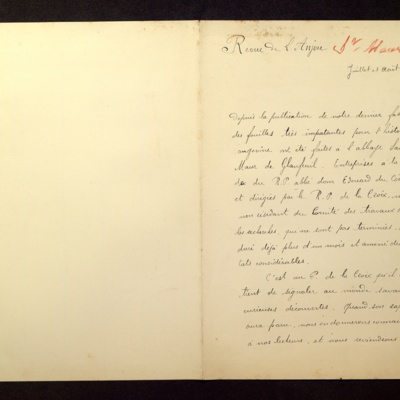 Revue de l'Anjou St Maur
Juillet et Août
Depuis la publication de notre dernier fas
des fouilles très importantes pour l'histo
angevine ont été faites à l'abbaye Sai
Maur de Glanfeuil. Entreprises à la
de du R.P. abbé dom Edouard du Co
et dirigés par le R.P. de la Croix,
non résidant du Comité des travaux
les recherches qui ne sont pas terminées
duré déjà plus d'un mois et amené des
tats considérables.
C'est au P. de la Croix qu'il
tient de signaler au monde savan
curieuses découvertes. Quand son
aura paru, nous en donnerons connais
à nos lecteurs, et nous reviendrons